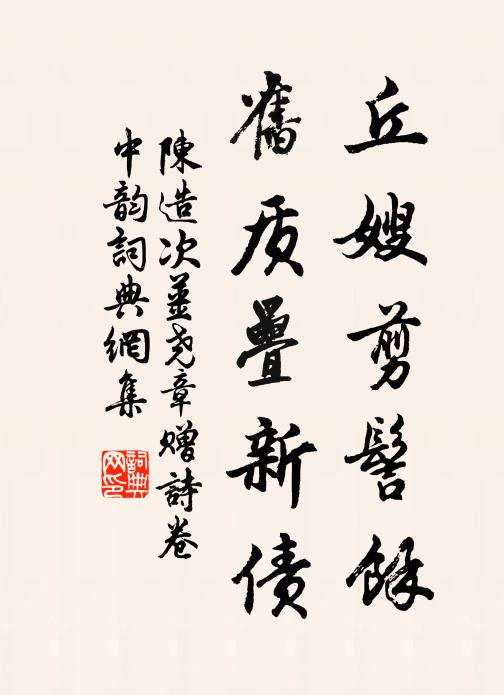 丘嫂剪髻餘
舊质疊新债
陳造次薑尧章贈詩卷
中韵詞典網集
詞典网印